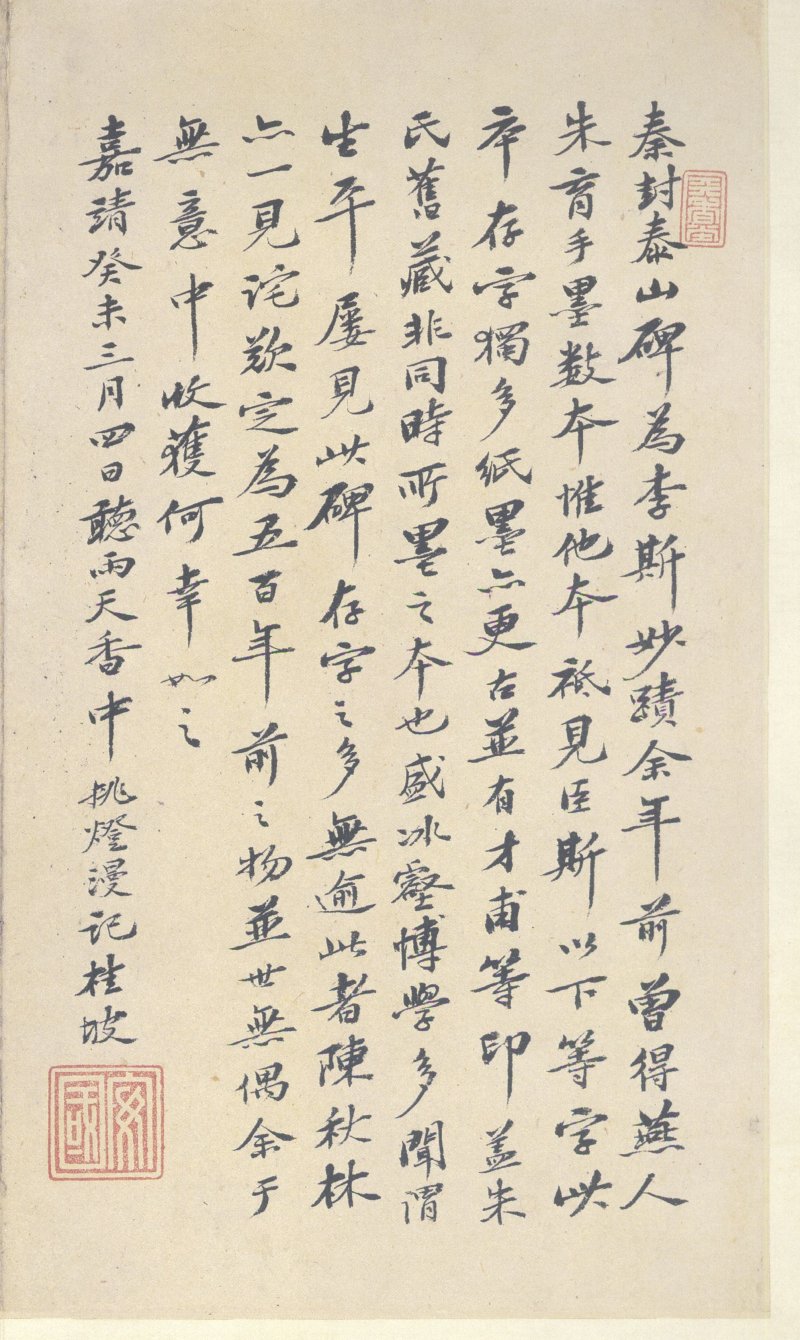 秦封泰山碑為李斯妙蹟余年前曾得燕人
朱育手墨数本惟他本祗見臣斯以下等字此
本存字獨多紙墨亦更古並有才甫等印盖朱
氏舊藏非同時所墨之本也盛冰壑博學多聞謂
生平屢見此碑存字之多無逾此者陳秋林
亦一見詫歎定為五百年前之物並世無偶余于
無意中收獲何幸如之
嘉靖癸未三月四日聽雨天香中挑燈漫記桂坡
安國